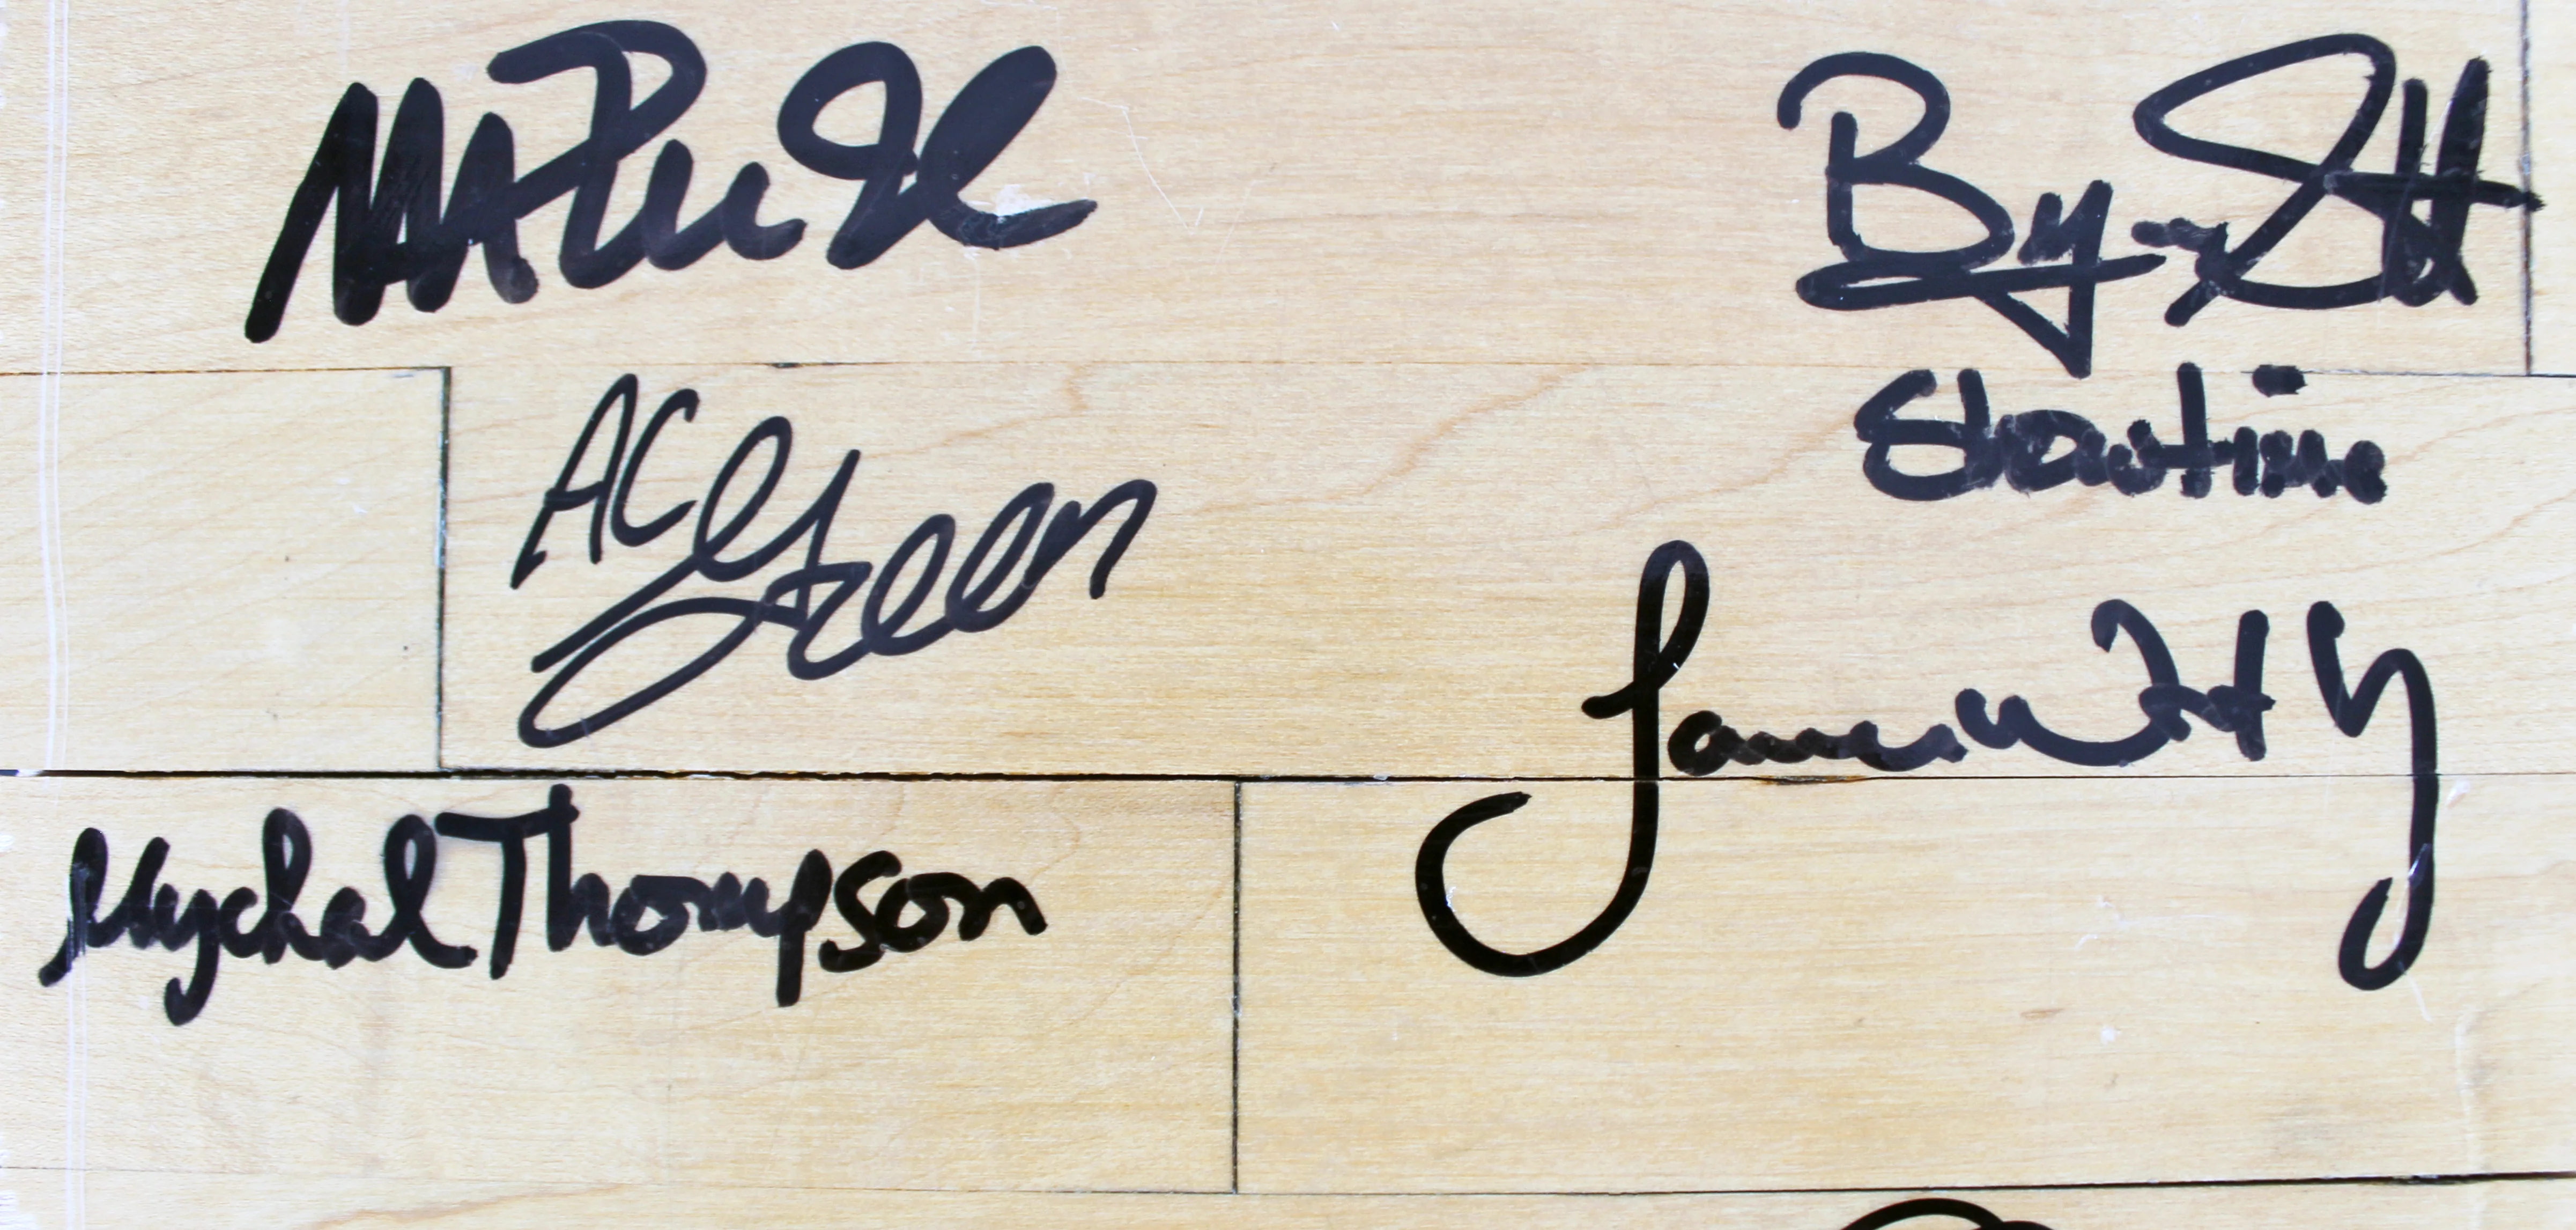 Magic Johnson
Byron Scott
Showtime
AC Green
James Worthy
Mychal Thompson